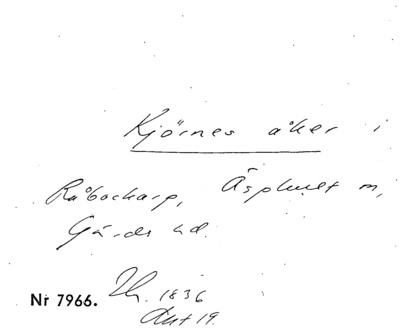 Kjörnes åker i
Råbockarp, Äsphult m,
Gärds hd.
Nr 7966. 1836
Akt 19.